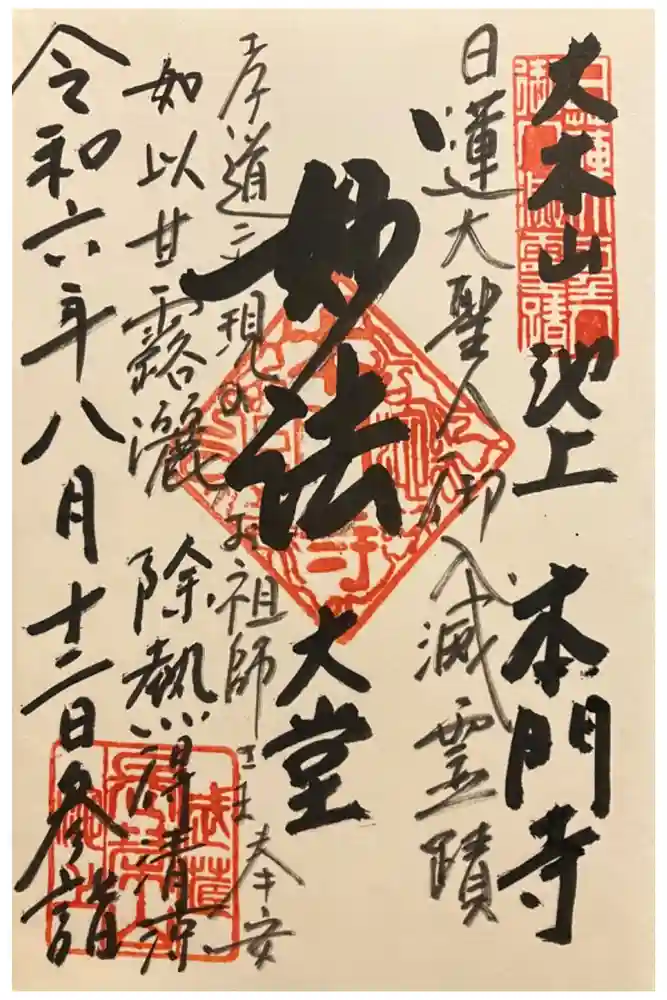 大本山 池上 本門寺
日蓮大聖人御入滅霊蹟
妙法
大堂
孝道示現のお祖師さま奉安
如以甘露灑 除熱得清涼
令和六年八月十二日参詣